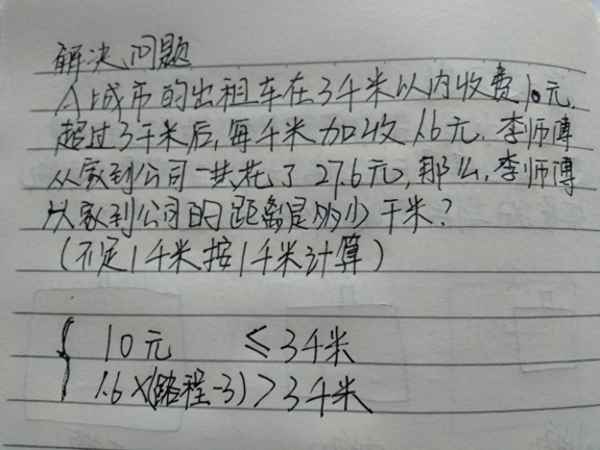 解决问题
A城市的出租车在3千米以内收费10元.
超过3千米后,每千米加收1.6元.李师傅
从家到公司一共花了27.6元,那么,李师傅
从家到公司的距离是多少千米?
(不足1千米按1千米计算)
{ 10元 ≤3千米
1.6×(路程-3)>3千米